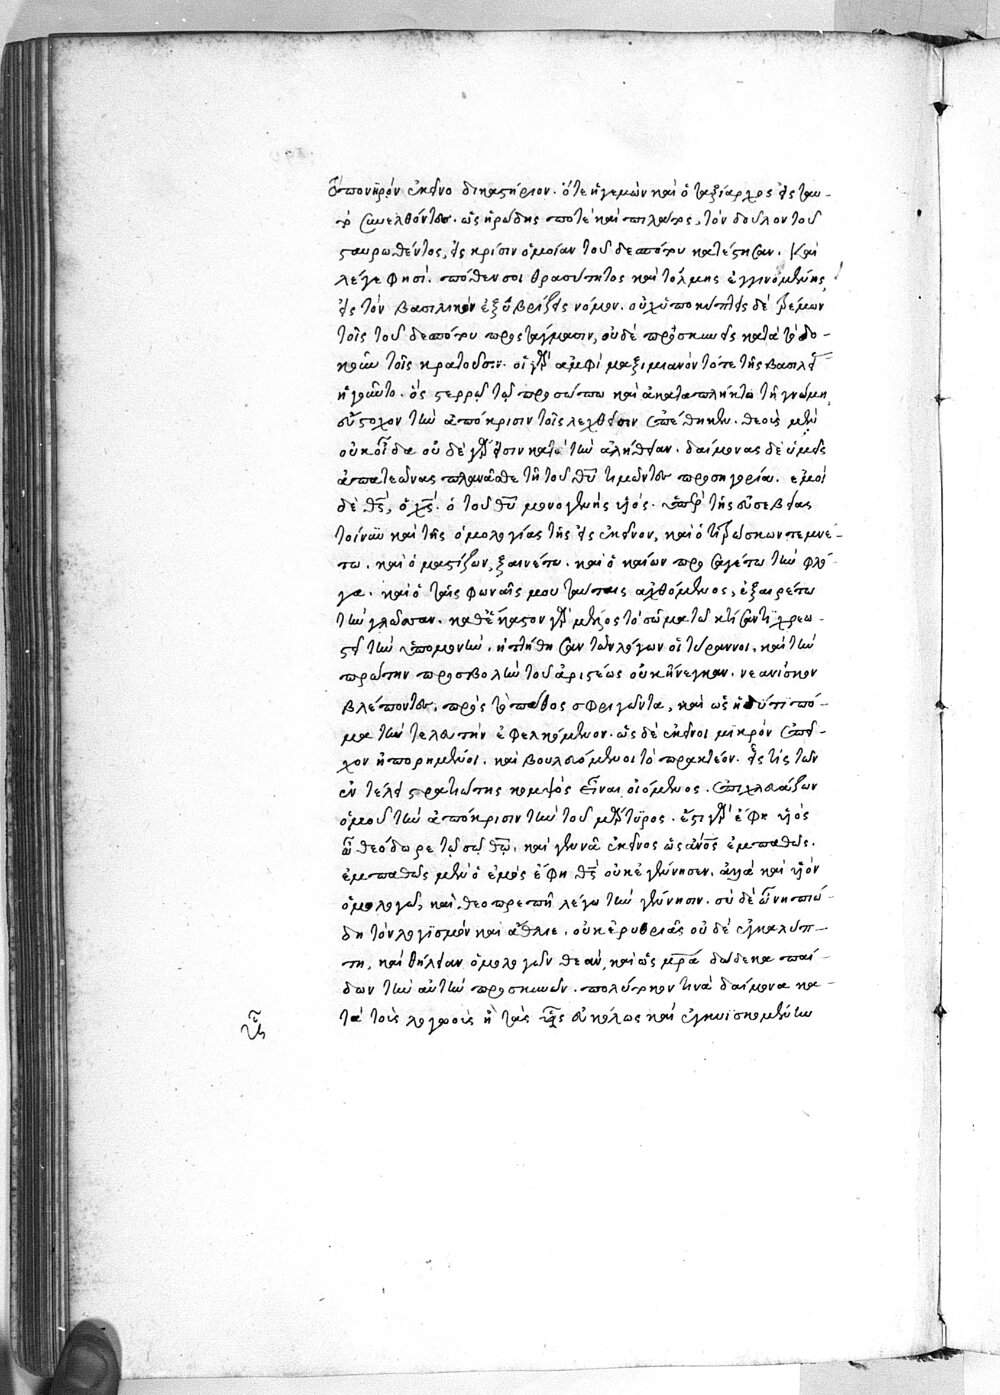 τὸ πονηρὸν ἐκεῖνο δικαστήριον. ὅτε ἡγεμὼν καὶ ὁ ταξίαρχος εἰς ταυ-
τὸ συνελθόντες. ὡς ἡρώδης ποτὲ καὶ πιλάτος, τὸν δοῦλον τοῦ
σταυρωθέντος, εἰς κρίσιν ὁμοίαν τοῦ δεσπότου κατέστησαν. Καὶ
λέγε φησὶ. πόθεν σοι θρασύτητος καὶ τόλμης ἐγγινομένης,
εἰς τὸν βασιλικὸν ἐξυβρίζεις νόμον. οὐχ ὑποκύπτεις δὲ τρέμων
τοῖς τοῦ δεσπότου προστάγμασιν, οὐδὲ προσκυνεῖς κατὰ τὸ δο-
κοῦν τοῖς κρατοῦσιν. οἱ γὰρ ἀμφὶ μαξιμιανὸν τότε τῆς βασιλεί
ἡγοῦντο. ὁς στερρῷ τῷ προσώπω καὶ ἀκαταπλήκτω τῆ γνώμη,
εὔστοχον τὴν ἀπόκρισιν τοῖς λεχθεῖσιν ἐπέθηκεν. θεοὺς μὲν
οὐκ οἶδα οὐδὲ γάρ εἰσιν κατὰ τὴν ἀλήθειαν. δαίμονας δὲ ὑμεῖς
ἀπατεῶνας πλανᾶσθε τῆ τοῦ θυ τιμῶντες προσηγορία. ἐμοὶ
δὲ θς, ὁ χς. ὁ τοῦ θυ μονογενὴς υἱός. ὑπὲρ τῆς εὐσεβείας
τοίνυν καὶ τῆς ὁμολογίας τῆς εἰς ἐκεῖνον, καὶ ὁ τιτρώσκων τεμνέ-
τω. καὶ ὁ μαστίζων, ξαινέτω. καὶ ὁ καίων προσαγέτω τὴν φλό-
γα. καὶ ὁ ταῖς φωναῖς μου ταύταις ἀχθόμενος, ἐξαιρέτω
τὴν γλῶτταν. καθέκαστον γὰρ μέλος τὸ σῶμα τῶ κτίσαντι χρεω-
στεῖ τὴν ὑπομονήν. ἡττήθησαν τῶν λόγων οἱ τύραννοι, καὶ τὴν
πρώτην προσβολὴν τοῦ ἀριστέως οὐκ ἤνεγκαν. νεανίσκον
βλέποντες, πρὸς τὸ πάθος σφριγῶντα, καὶ ὡς ἡδύ τι πό-
μα τὴν τελευτὴν ἐφελκόμενον. ὡς δὲ ἐκεῖνοι μικρὸν ἐπεῖ-
χον ἠπορημένοι. καὶ βουλευόμενοι τὸ πρακτέον. εἷς τίς τῶν
ἐν τέλει στρατιώτης κομψὸς εἶναι οἰόμενος. ἐπιχλευάζων
ὁμοῦ τὴν ἀπόκρισιν τὴν τοῦ μάρτυρος. ἔστι γὰρ ἔφη υἱὸς
ὦ θεόδωρε τῷ σῷ θῷ. καὶ γεννᾶ ἐκεῖνος ὡς ἀνος ἐμπαθῶς.
ἐμπαθῶς μὲν ὁ ἐμὸς ἔφη θς οὐκ ἐγέννησεν. ἀλλὰ καὶ υἱὸν
ὁμολογῶ, καὶ θεοπρεπῆ λέγω τὴν γέννησιν. σὺ δὲ ὦ νηπιώ-
δη τὸν λογισμὸν καὶ ἄθλιε. οὐκ ἐρυθριᾶς οὐδὲ ἐγκαλύπ-
τη, καὶ θήλειαν ὁμολογῶν θεάν, καὶ ὡς μρα δώδεκα παί-
δων τὴν αὐτὴν προσκυνῶν. πολύτοκον τινὰ δαίμονα κα-
τὰ τοὺς λαγωοὺς ἢ τὰς ὗς εὐκόλως καὶ ἐγκυϊσκομένην